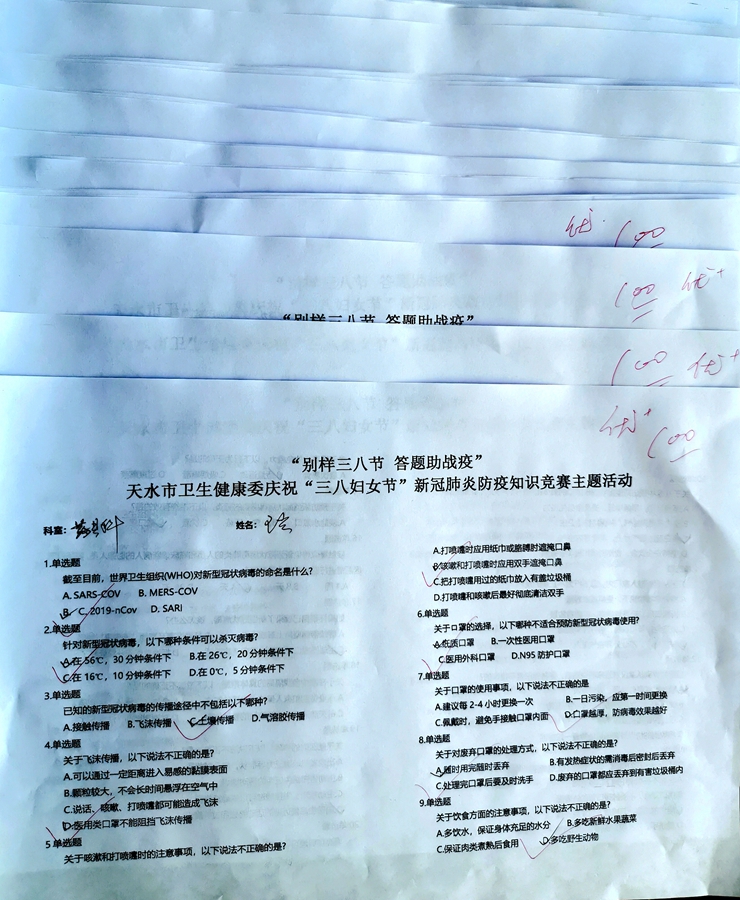 优 100
100 优+
“别样三八节 答题助战疫”
100 优+
优+ 100
“别样三八节 答题助战疫”
天水市卫生健康委庆祝“三八妇女节”新冠肺炎防疫知识竞赛主题活动
科室： 姓名：
1.单选题
截至目前，世界卫生组织(WHO)对新型冠状病毒的命名是什么?
A. SARS-COV B. MERS-COV
B C. 2019-nCov D. SARI
2.单选题
针对新型冠状病毒，以下哪种条件可以杀灭病毒?
A.在 56℃，30 分钟条件下 B.在 26℃，20 分钟条件下
C.在 16℃，10 分钟条件下 D.在 0℃，5 分钟条件下
3.单选题
已知的新型冠状病毒的传播途径中不包括以下哪种?
A.接触传播 B.飞沫传播 C.土壤传播 D.气溶胶传播
4.单选题
关于飞沫传播，以下说法不正确的是?
A.可以通过一定距离进入易感的黏膜表面
B.颗粒较大，不会长时间悬浮在空气中
C.说话、咳嗽、打喷嚏都可能造成飞沫
D.医用类口罩不能阻挡飞沫传播
5 单选题
关于咳嗽和打喷嚏时的注意事项，以下说法不正确的是?
A.打喷嚏时应用纸巾或胳膊肘遮掩口鼻
B.咳嗽和打喷嚏时应用双手遮掩口鼻
C.把打喷嚏用过的纸巾放入有盖垃圾桶
D.打喷嚏和咳嗽后最好彻底清洁双手
6.单选题
关于口罩的选择，以下哪种不适合预防新型冠状病毒使用?
A.纸质口罩 B.一次性医用口罩
C.医用外科口罩 D.N95 防护口罩
7.单选题
关于口罩的使用事项，以下说法不正确的是
A.建议每 2-4 小时更换一次 B.一日污染，应第一时间更换
C.佩戴时，避免手接触口罩内面 D.口罩越厚，防病毒效果越好
8.单选题
关于对废弃口罩的处理方式，以下说法不正确的是?
A.随时用完随时丢弃 B.有发热症状的需消毒后密封后丢弃
C.处理完口罩后要及时洗手 D.废弃的口罩都应丢弃到有害垃圾桶内
9.单选题
关于饮食方面的注意事项，以下说法不正确的是?
A.多饮水，保证身体充足的水分 B.多吃新鲜水果蔬菜
C.保证肉类煮熟后食用 D.多吃野生动物